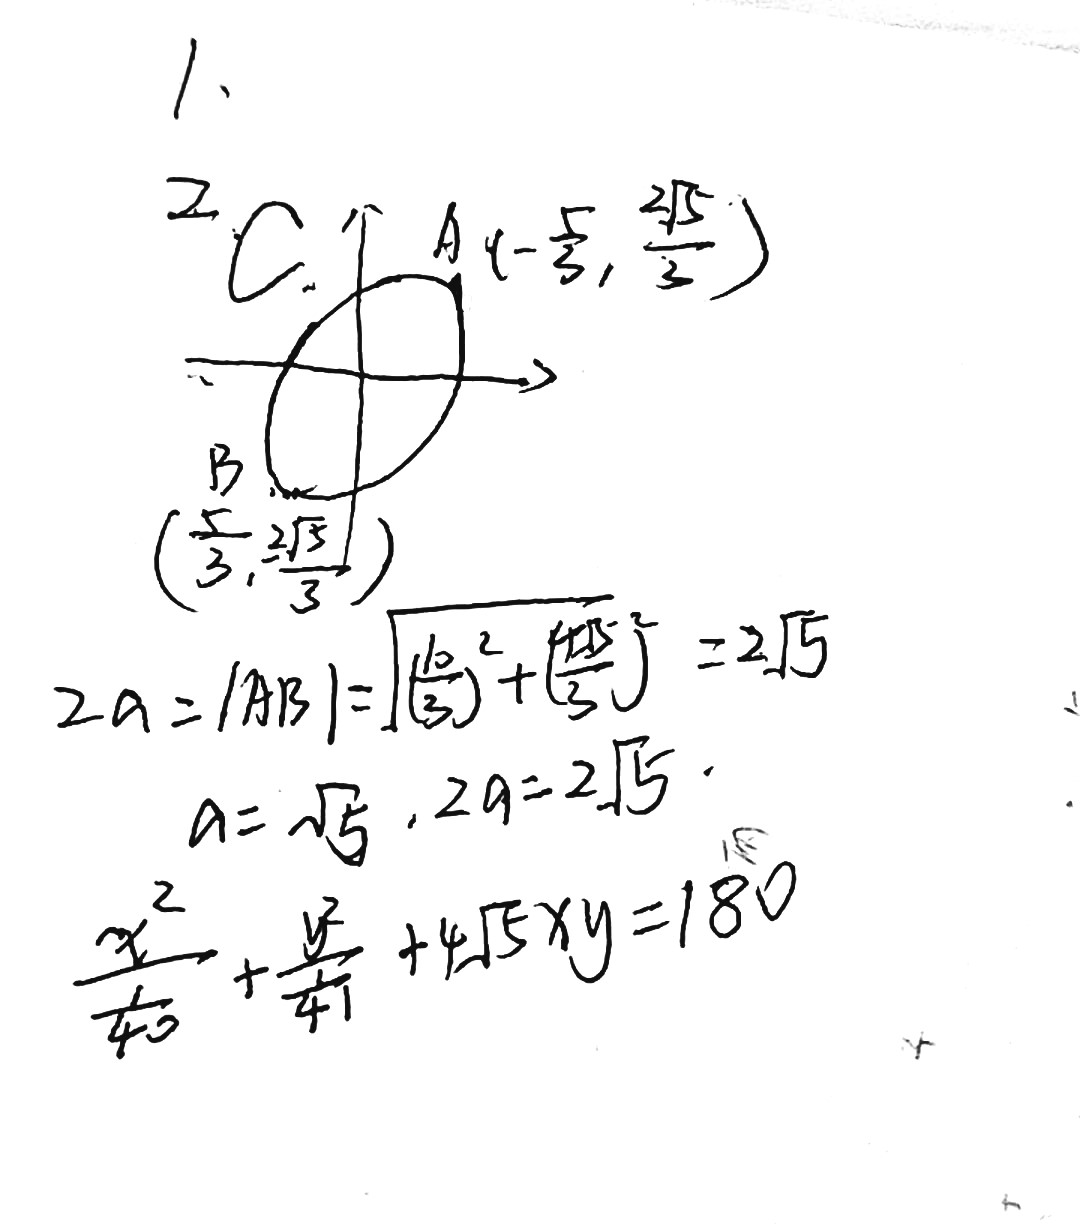 1.
2.
C:
A (-5/3, 2√5/3)
B
(5/3, -2√5/3)
2a=|AB|=√((10/3)²+(4√5/3)²) =2√5
a=√5 . 2a=2√5.
x²/(1/40)+y²/(1/41)+4√5xy=180